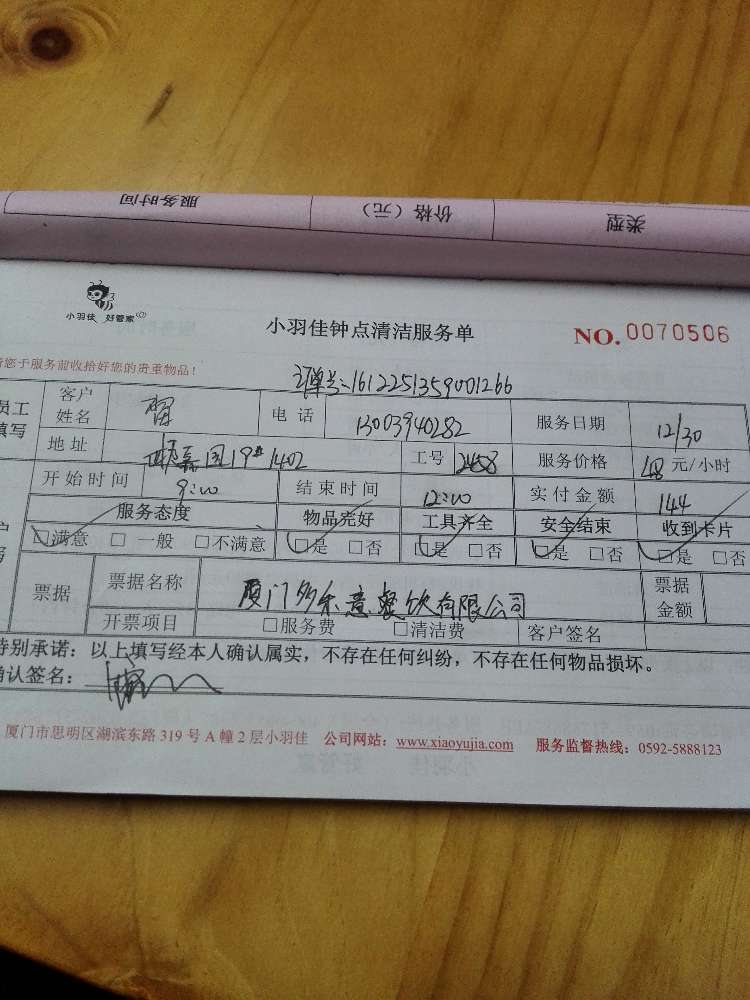 服务时间 价格（元） 类型
小羽佳 好管家
小羽佳钟点清洁服务单 NO. 0070506
您于服务前收拾好您的贵重物品！
订单号:1612251359001266
员工填写 客户姓名 电话 13003940282 服务日期 12/30
地址 嘉园19#1402 工号 2458 服务价格 48 元/小时
开始时间 9:00 结束时间 12:00 实付金额 144
服务态度 物品完好 工具齐全 安全结束 收到卡片
☑满意 □一般 □不满意 ☑是 □否 ☑是 □否 ☑是 □否 ☑是 □否
票据 票据名称 厦门多乐意餐饮有限公司 票据金额
开票项目 □服务费 □清洁费 客户签名
特别承诺：以上填写经本人确认属实，不存在任何纠纷，不存在任何物品损坏。
确认签名：
厦门市思明区湖滨东路 319 号 A 幢 2 层小羽佳 公司网站：www.xiaoyujia.com 服务监督热线：0592-5888123